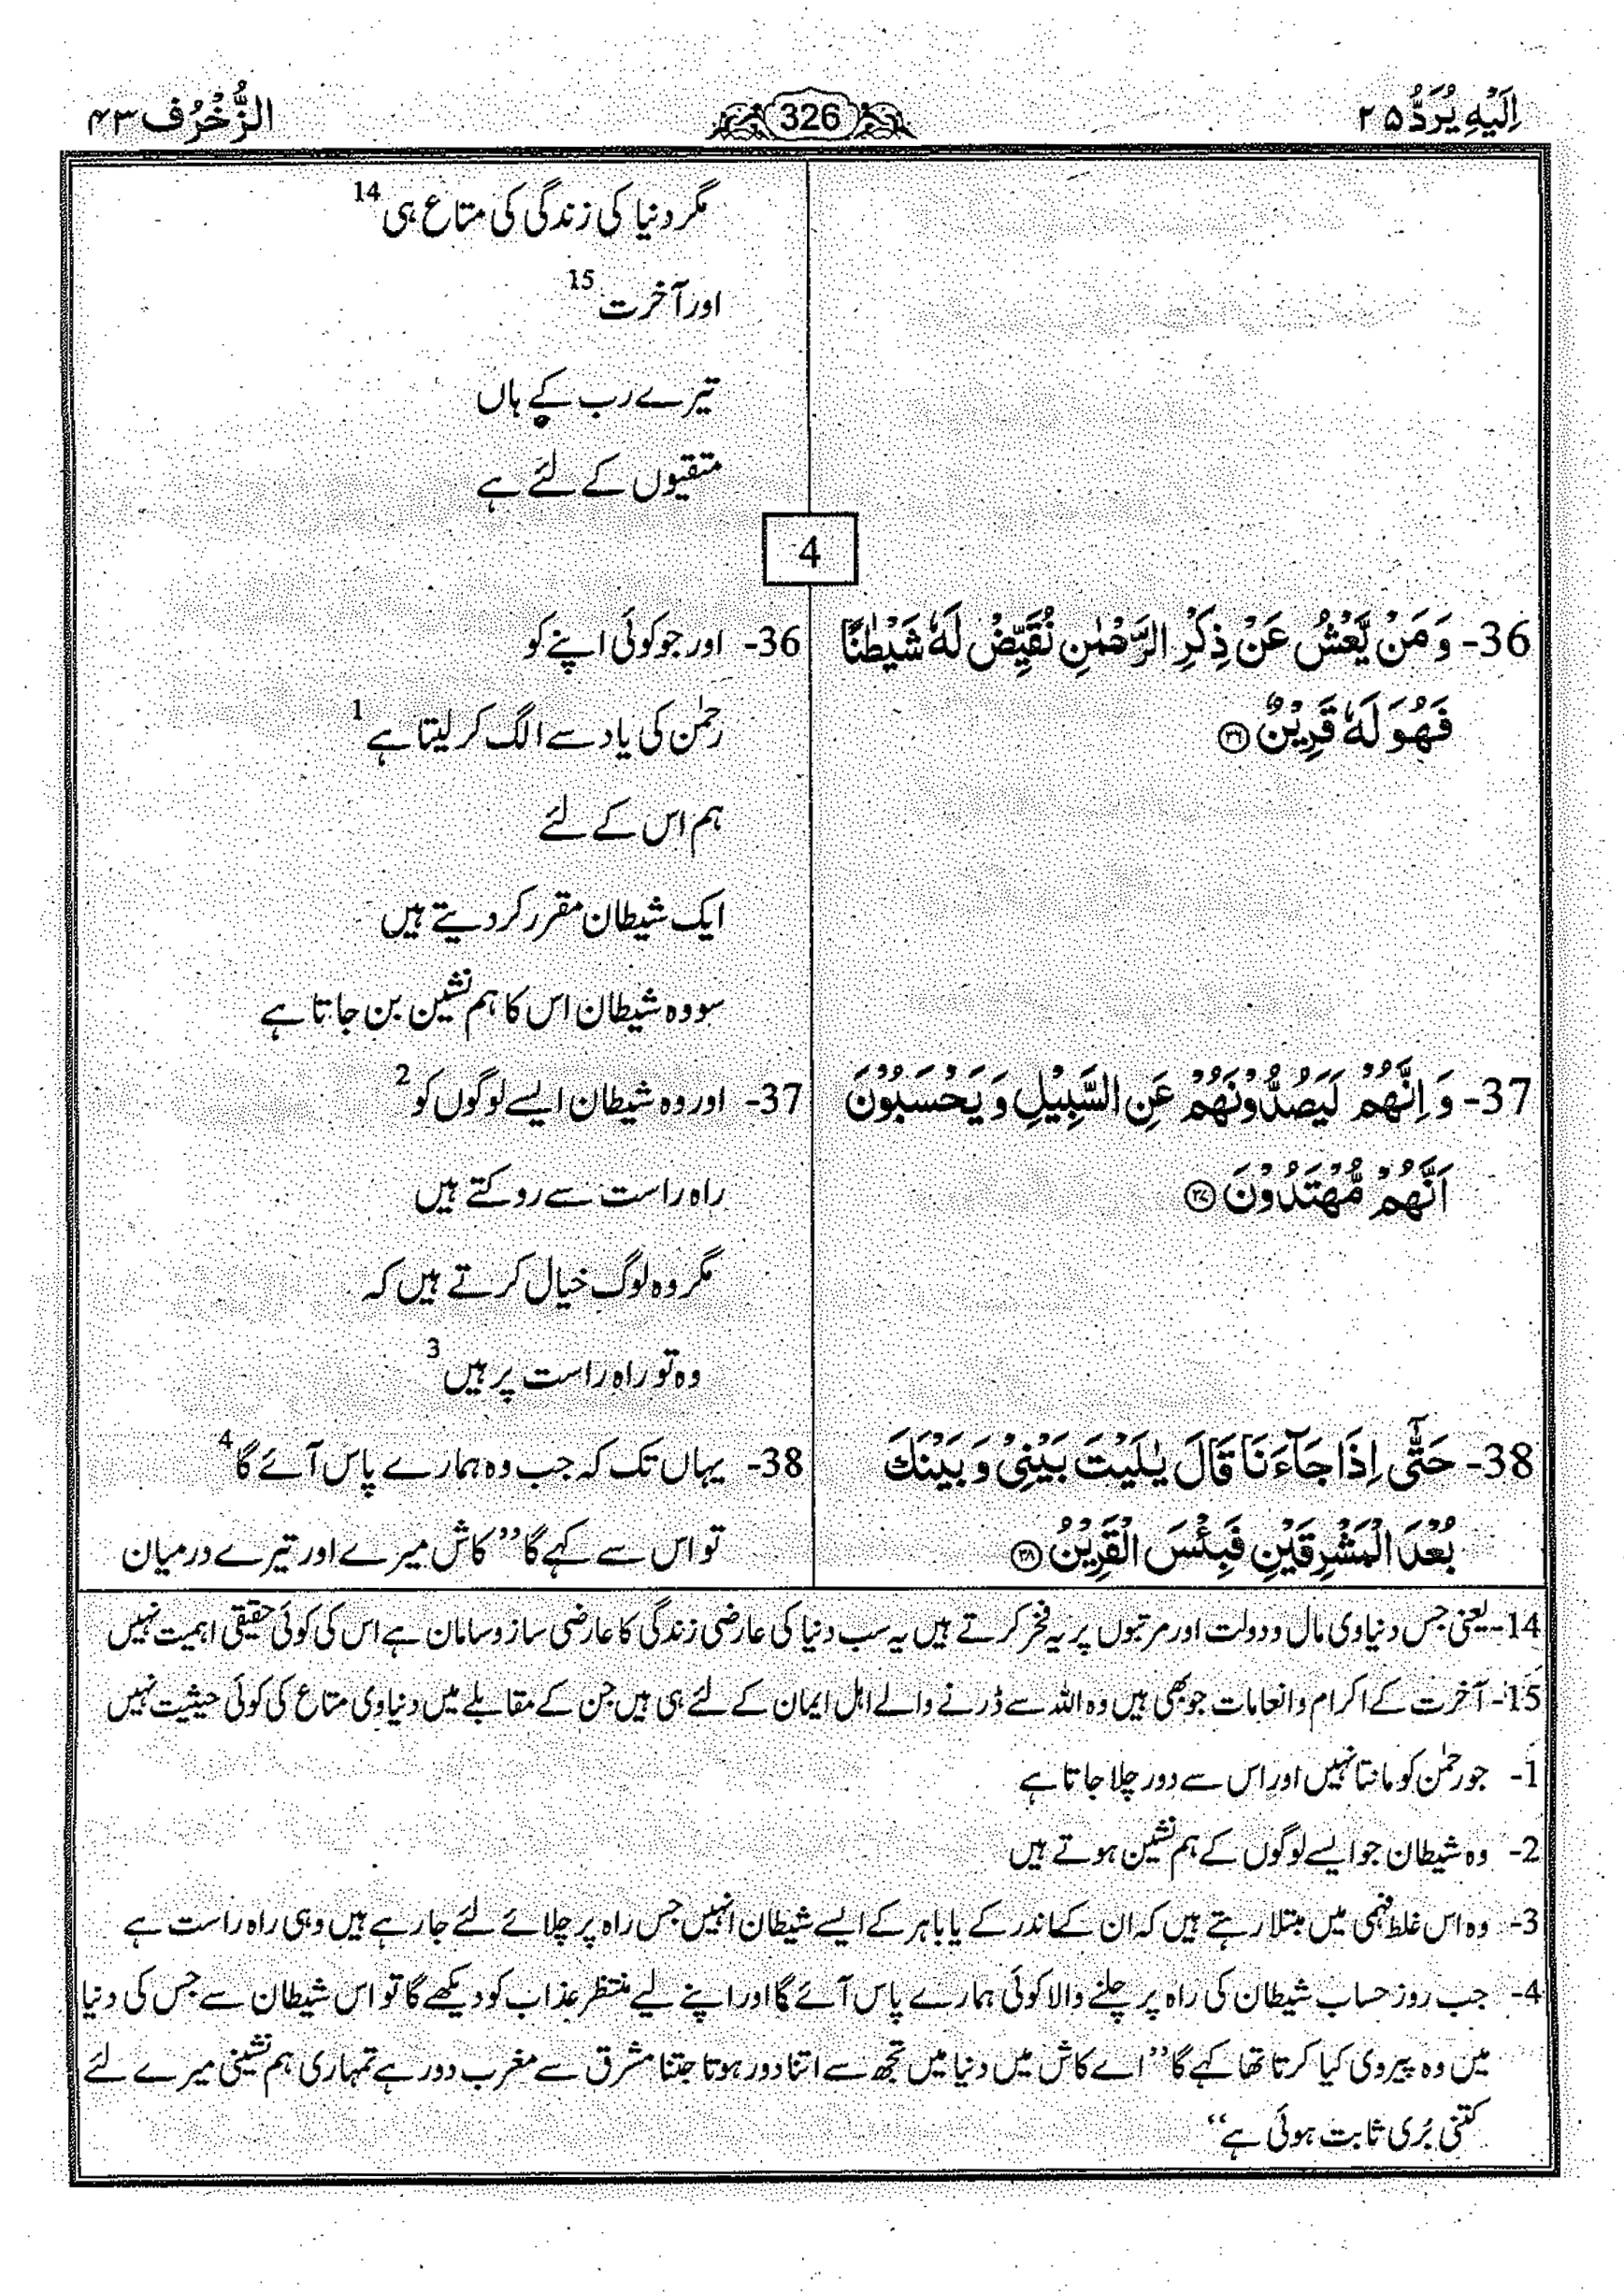 اِلَيْهِ يُرَدُّ ۲۵
326
الزُّخْرُف ۴۳
مگر دنیا کی زندگی کی متاع ہی 14
اور آخرت 15
تیرے رب کے ہاں
متقیوں کے لئے ہے
4
36- وَ مَنْ يَّعْشُ عَنْ ذِكْرِ الرَّحْمٰنِ نُقَيِّضْ لَهٗ شَيْطٰنًا
فَهُوَ لَهٗ قَرِيْنٌ ۳۶
36- اور جو کوئی اپنے کو
رحمٰن کی یاد سے الگ کر لیتا ہے 1
ہم اس کے لئے
ایک شیطان مقرر کر دیتے ہیں
سو وہ شیطان اس کا ہم نشین بن جاتا ہے
37- وَ اِنَّهُمْ لَيَصُدُّوْنَهُمْ عَنِ السَّبِيْلِ وَ يَحْسَبُوْنَ
اَنَّهُمْ مُّهْتَدُوْنَ ۳۷
37- اور وہ شیطان ایسے لوگوں کو 2
راہ راست سے روکتے ہیں
مگر وہ لوگ خیال کرتے ہیں کہ
وہ تو راہ راست پر ہیں 3
38- حَتّٰٓى اِذَا جَآءَنَا قَالَ يٰلَيْتَ بَيْنِيْ وَ بَيْنَكَ
بُعْدَ الْمَشْرِقَيْنِ فَبِئْسَ الْقَرِيْنُ ۳۸
38- یہاں تک کہ جب وہ ہمارے پاس آئے گا 4
تو اس سے کہے گا ’’کاش میرے اور تیرے درمیان
14- یعنی جس دنیاوی مال و دولت اور مرتبوں پر یہ فخر کرتے ہیں یہ سب دنیا کی عارضی زندگی کا عارضی ساز و سامان ہے اس کی کوئی حقیقی اہمیت نہیں
15- آخرت کے اکرام و انعامات جو بھی ہیں وہ اللہ سے ڈرنے والے اہل ایمان کے لئے ہی ہیں جن کے مقابلے میں دنیاوی متاع کی کوئی حیثیت نہیں
1- جو رحمٰن کو مانتا نہیں اور اس سے دور چلا جاتا ہے
2- وہ شیطان جو ایسے لوگوں کے ہم نشین ہوتے ہیں
3- وہ اس غلط فہمی میں مبتلا رہتے ہیں کہ ان کے اندر کے یا باہر کے ایسے شیطان انہیں جس راہ پر چلائے لئے جا رہے ہیں وہی راہ راست ہے
4- جب روز حساب شیطان کی راہ پر چلنے والا کوئی ہمارے پاس آئے گا اور اپنے لیے منتظر عذاب کو دیکھے گا تو اس شیطان سے جس کی دنیا
میں وہ پیروی کیا کرتا تھا کہے گا ’’اے کاش میں دنیا میں تجھ سے اتنا دور ہوتا جتنا مشرق سے مغرب دور ہے تمہاری ہم نشینی میرے لئے
کتنی بُری ثابت ہوئی ہے‘‘